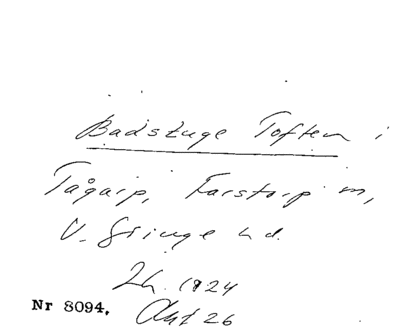 Badstuge Toften i
Tågarp, Farstorp m,
V. Göinge hd.
Lh. 1924
Nr 8094. Akt 26